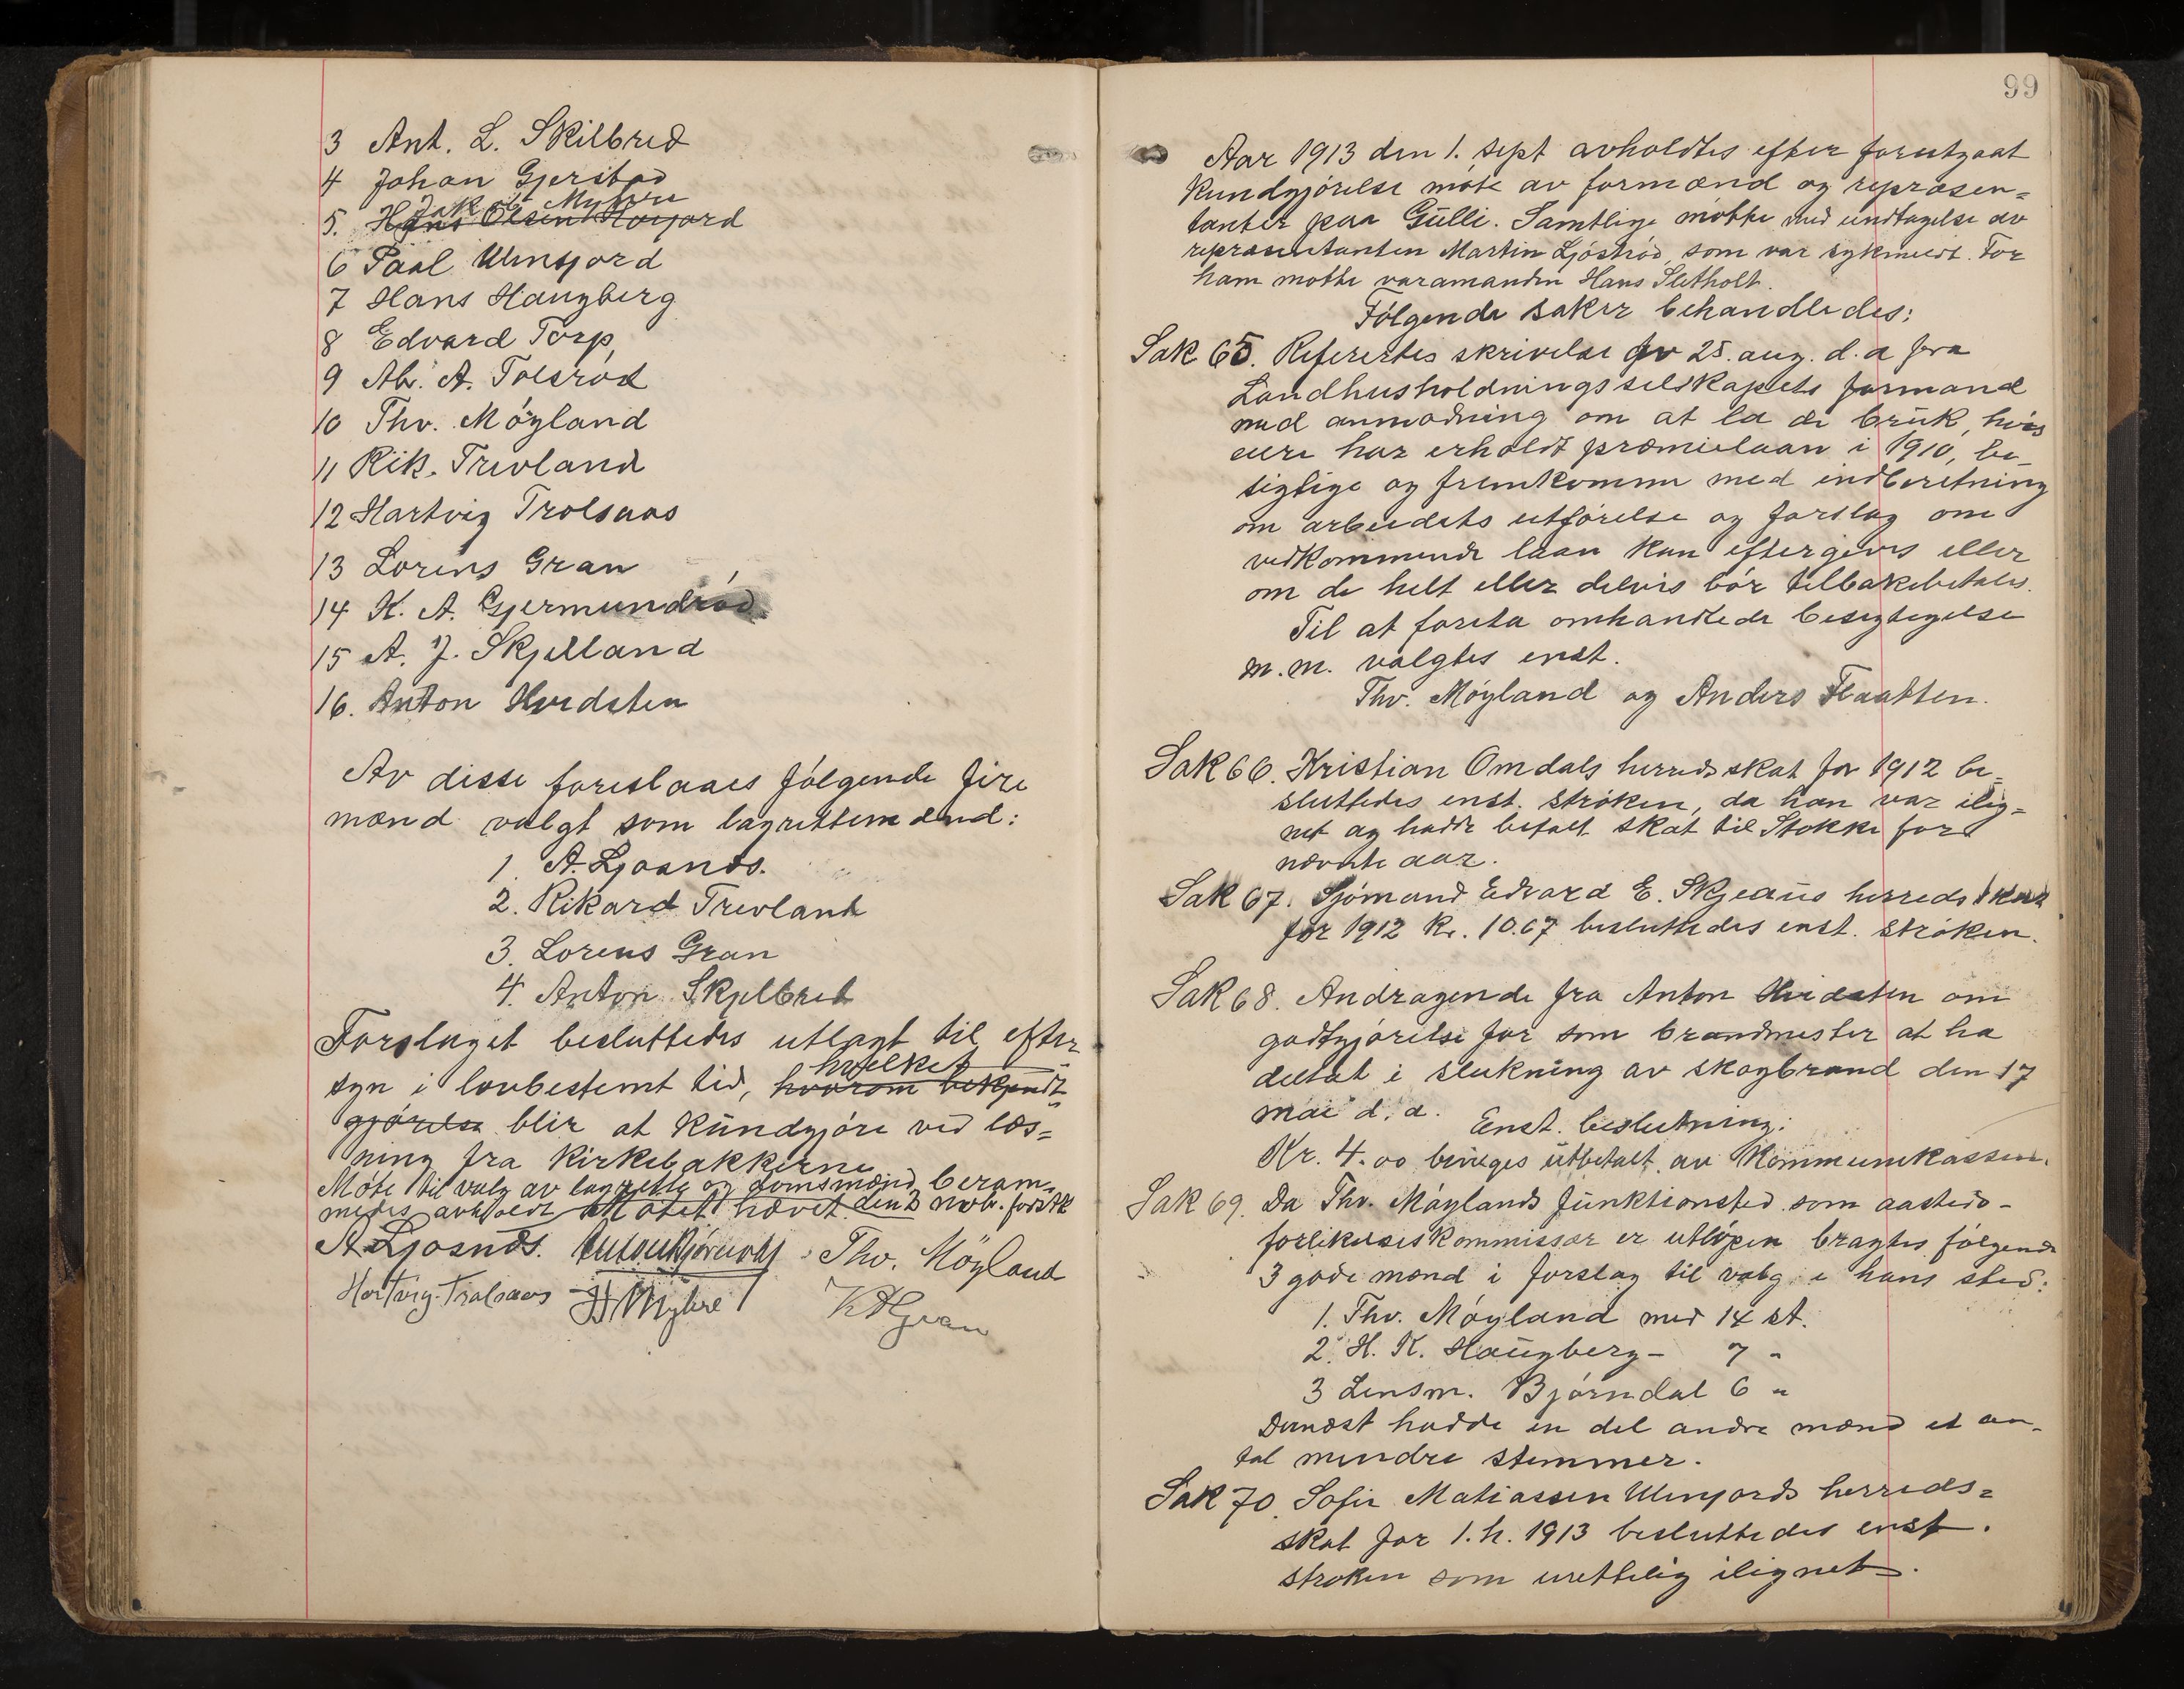 3 Ant. L. Skilbred
4 Johan Gjerstad
Jakob Myhre
5. Hans Olsen Horgord
6 Paal Unnsgord
7 Hans Haugberg
8 Edvard Torp
9 Ab. A. Tolsrød
10 Thv. Møyland
11 Rik. Trevland
12 Hartvig Trolsaas
13 Lorens Gran
14 K. A. Gjermundrød
15 A. J. Skjelland
16. Anton Hvidsten
Av disse foreslaaes følgende fire
mænd valgt som lagrettemænd:
1. A. Ljosnds.
2. Rikard Trevland
3. Lorens Gran
4. Anton Skjelbred
Forslaget besluttedes utlagt til efter
hvilket
syn i lovbestemt tid, hvorom bekjendt
gjørelse blir at kundgjøre ved læs=
ning fra kirkebakkerne
Møte til valg av lagrette og domsmænd beram-
medes avholdt Møtet hævet den 3 novb. førstk
A Ljosnds. Thv. Möyland
Hartvig Trolsaas H Myhre K A Gran
99
Aar 1913 den 1. sept avholdtes efter forutgaat
kundgjørelse møte av formænd og repræsen=
tanter paa Gulli. Samtlige møtte med undtagelse av
repræsentanten Martin Ljöstrød, som var sykmeldt. For
ham møtte varamanden Hans Sletholt.
Følgende saker behandledes:
Sak 65. Referertes skrivelse av 25. aug. d. a fra
Landhusholdningsselskapets formand
med anmodning om at la de bruk, hvis
eiere har erholdt præmielaan i 1910, be-
sigtige og fremkomme med indberetning
om arbeidets utførelse og forslag om
vedkommende laan kan eftergives eller
om de helt eller delvis bør tilbakebetales.
Til at foreta omhandlede besigtigelse
m.m. valgtes enst.
Thv. Møyland og Anders Flaatten.
Sak 66. Kristian Omdals herredsskat for 1912 be-
sluttedes enst. strøken, da han var ilig=
net og hadde betalt skat til Stokke for
nævnte aar.
Sak 67. Sjømand Edvard E. Skjeaus herredsskat
for 1912 kr. 10.67 besluttedes enst. strøken.
Sak 68. Andragende fra Anton Hvidsten om
godtgjørelse for som brandmester at ha
deltat i slukning av skogbrand den 17
mai d. a. Enst. beslutning:
Kr. 4.00 bevilges utbetalt av kommunekassen.
Sak 69. Da Thv. Møylands funktionstid som aasteds-
forlikelseskommissær er utløpen bragtes følgende
3 gode mænd i forslag til valg i hans sted:
1. Thv. Møyland med 14 st.
2. H. K. Haugberg - 7 "
3 Lensm. Bjørndal 6 "
Dernæst hadde en del andre mænd et an-
tal mindre stemmer.
Sak 70. Sofie Matiassen Unnegords herreds=
skat for 1. h. 1913 besluttedes enst.
strøken som urettelig ilignet.